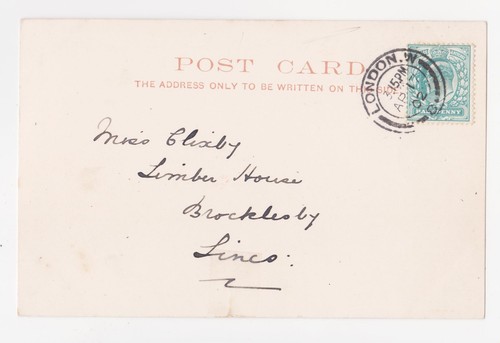 POST CARD
THE ADDRESS ONLY TO BE WRITTEN ON THIS
LONDON. W
3.15PM
AP 1
02
HALFPENNY
Miss Clixby
Limber House
Brocklesby
Lincs: